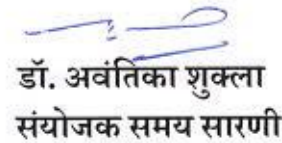 डॉ. अवंतिका शुक्ला
संयोजक समय सारणी